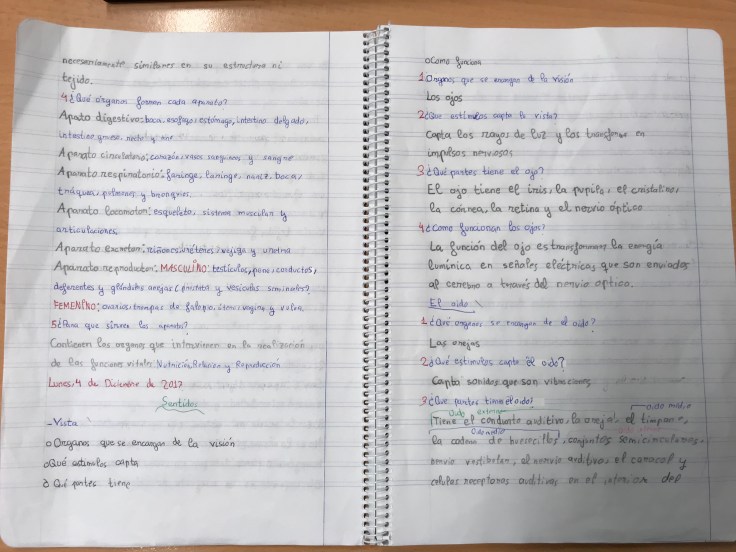 necesariamente similares en su estructura ni
tejido.
4¿Qué órganos forman cada aparato?
Aparato digestivo: boca, esofago, estómago, intestino delgado,
intestino grueso, recto y ano
Aparato circulatorio: corazón, vasos sanguineos y sangre
Aparato respiratorio: faringe, laringe, nariz, boca,
tráquea, pulmones y bronquios.
Aparato locomotor: esqueleto, sistema muscular y
articulaciones.
Aparato excretor: riñones, uréteres, vejiga y uretra
Aparato reproductor: MASCULINO: testículos, pene, conductos,
deferentes y glándulas anejas (próstata y vesículas seminales)
FEMENINO: ovarios, trompas de falopio, útero, vagina y vulva.
5¿Para que sirven los aparatos?
Contienen los organos que intervienen en la realización
de las funciones vitales Nutrición, Relación y Reproducción
Lunes, 4 de Diciembre de 2017
Sentidos
-Vista
o Organos que se encargan de la visión
o Qué estimulos capta
o Qué partes tiene
o Como funciona
1 Organos que se encargan de la visión
Los ojos
2¿Qué estímulos capta la vista?
Capta los rayos de luz y los transforma en
impulsos nerviosos
3 ¿Qué partes tiene el ojo?
El ojo tiene el iris, la pupila, el cristalino,
la córnea, la retina y el nervio óptico
4¿Como funcionan los ojos?
La función del ojo es transformar la energía
lumínica en señales eléctricas que son enviadas
al cerebro a través del nervio óptico.
El oido
1 ¿Qué organos se encargan de el oido?
Las orejas
2¿Qué estimulos capta el oido?
Capta sonidos que son vibraciones
3¿Que partes tiene el oido?
Oido externo
Oido medio
Tiene el conducto auditivo, la oreja, el timpano,
Oido medio
la cadena de huesecillos, conjuntos semicirculares,
nervio vestibular, el nervio auditivo, el caracol y
celulas receptoras auditivas en el interior del